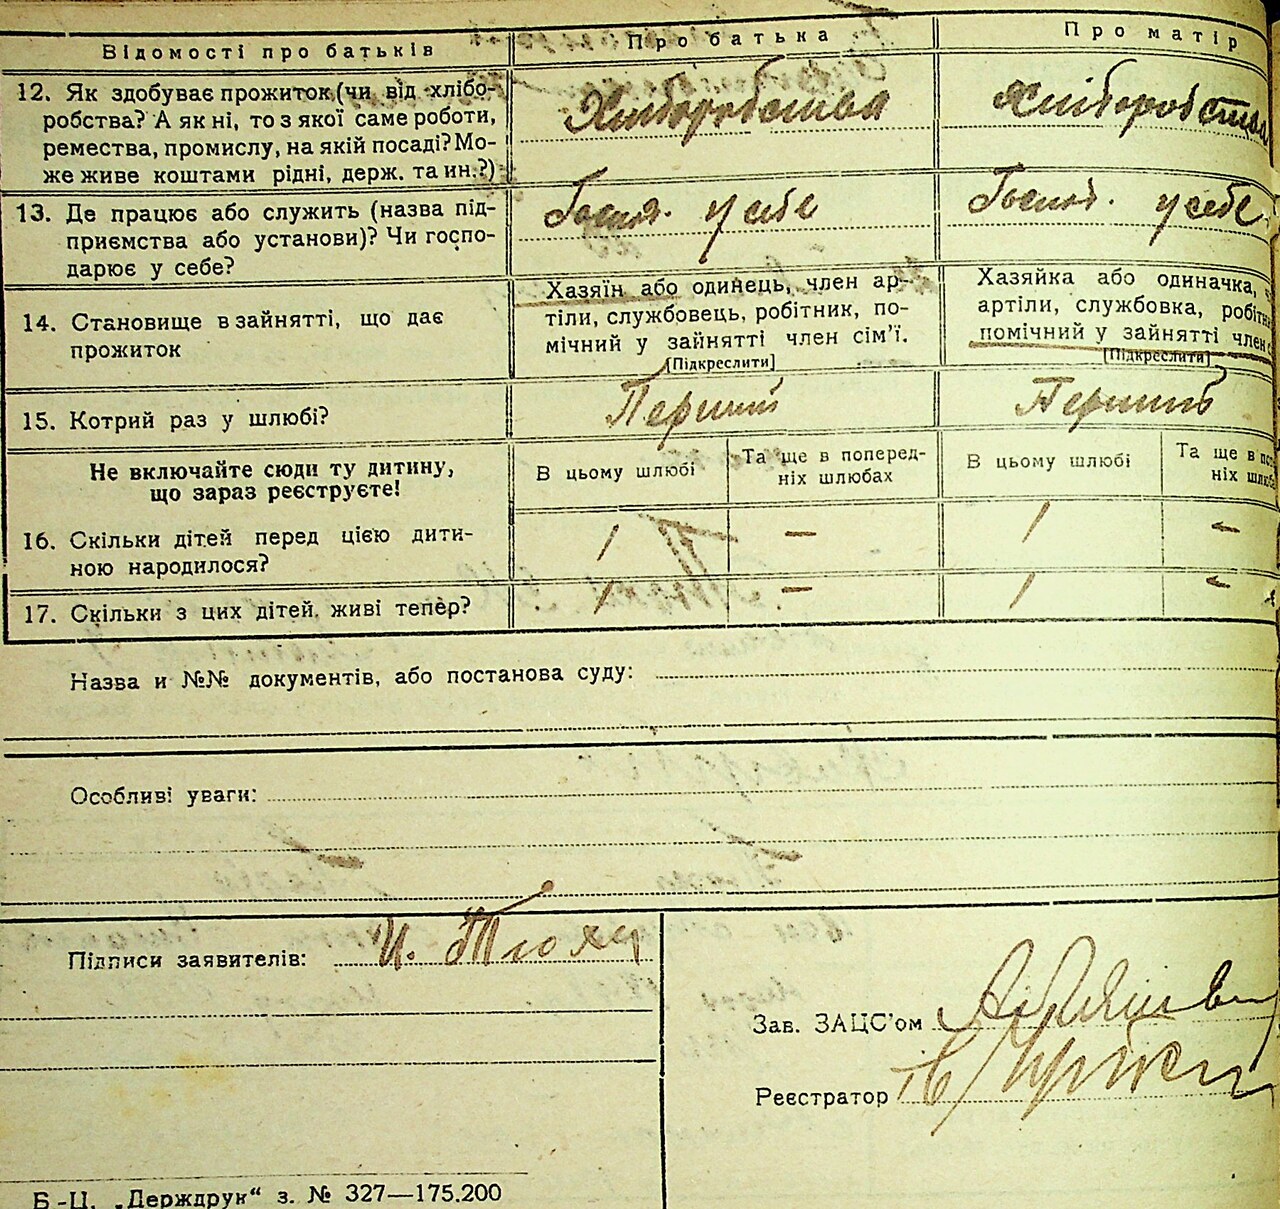 Відомості про батьків
Про батька
Про матір
12. Як здобуває прожиток (чи від хлібо-
робства? А як ні, то з якої саме роботи,
ремества, промислу, на якій посаді? Мо-
же живе коштами рідні, держ. та ин.?)
Хліборобства
Хліборобства
13. Де працює або служить (назва під-
приємства або установи)? Чи госпо-
дарює у себе?
Госпо. у себе
Господ. у себе
14. Становище в зайнятті, що дає
прожиток
Хазяїн або одинець, член ар-
тіли, службовець, робітник, по-
мічний у зайнятті член сім'ї.
[Підкреслити]
Хазяйка або одиначка,
артіли, службовка,
помічний у зайнятті член
[Підкреслити]
15. Котрий раз у шлюбі?
Перший
Перший
Не включайте сюди ту дитину,
що зараз реєструєте!
В цьому шлюбі
Та ще в поперед-
ніх шлюбах
В цьому шлюбі
Та ще в
ніх
16. Скільки дітей перед цією дити-
ною народилося?
1 — 1 —
17. Скільки з цих дітей живі тепер?
1 — 1 —
Назва и №№ документів, або постанова суду:
Особливі уваги:
Підписи заявителів: И. Тлоху
Зав. ЗАЦС'ом
Реєстратор
Б-Ц. „Держдрук“ з. № 327—175.200